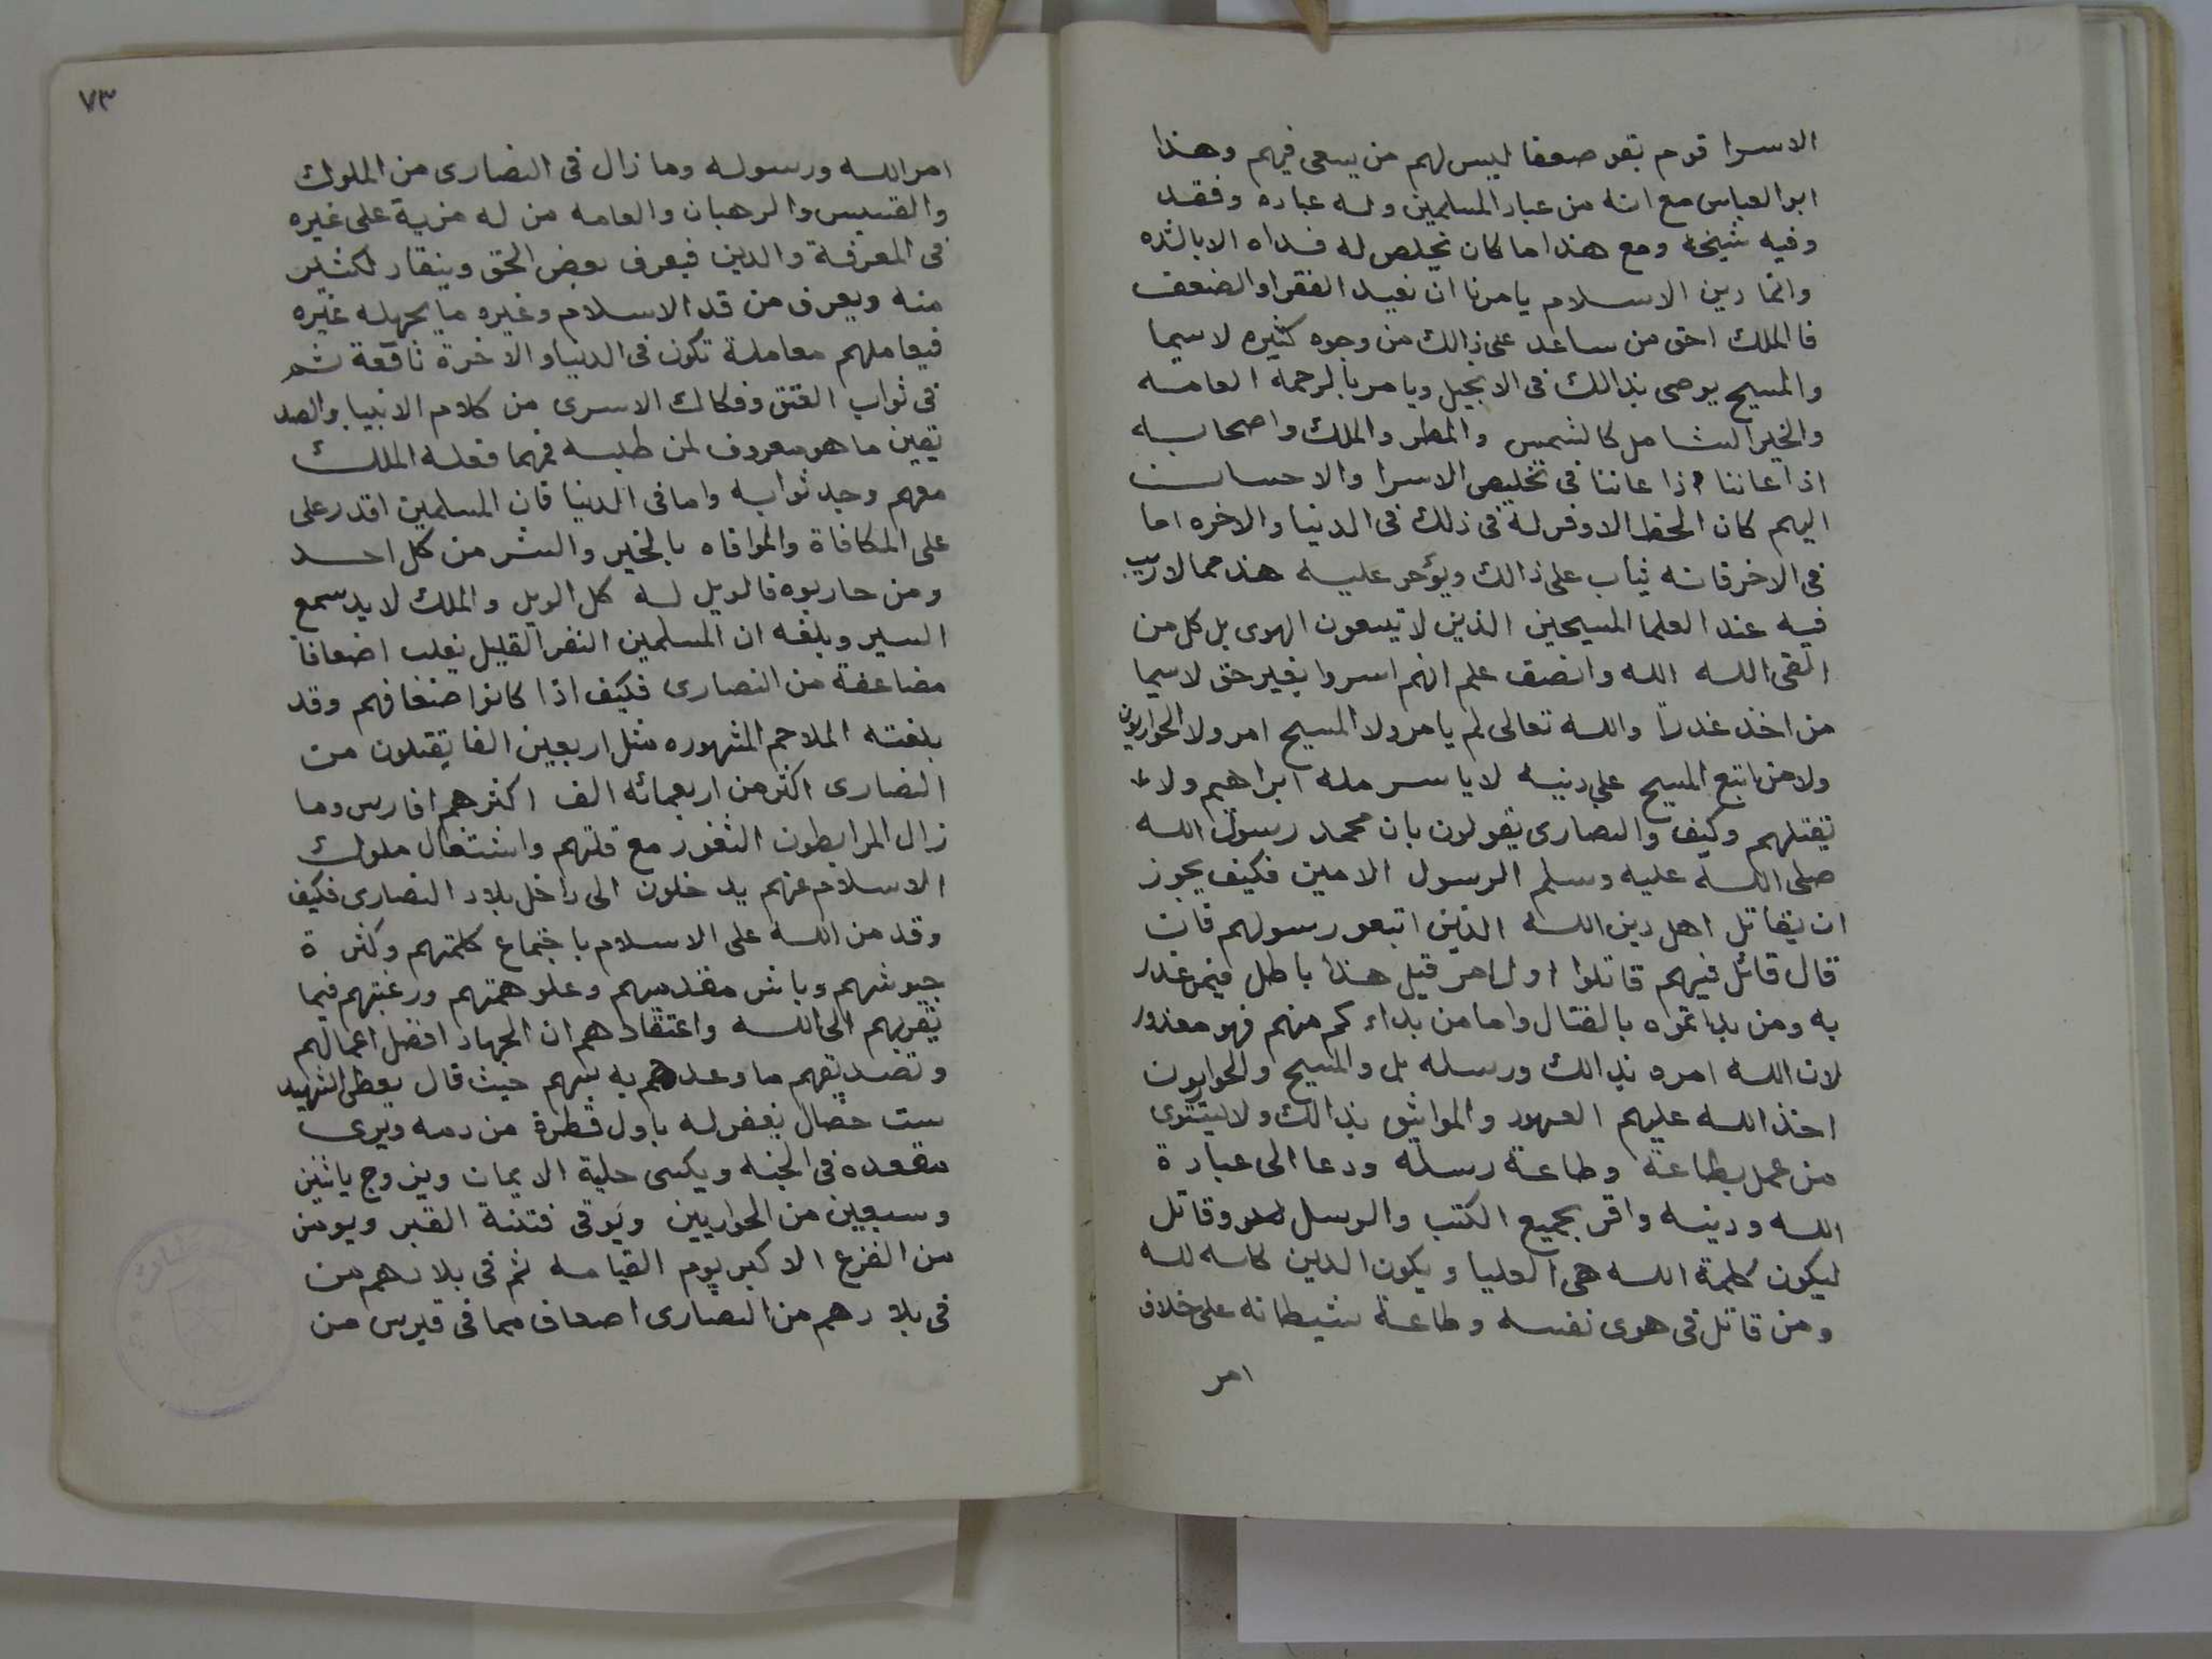 الاسرا قوم بقو صعفا ليس لهم من يسعى فيهم وهذا
ابو العباس مع انه من عباد المسلمين وله عباده وفقد
وفيه شيخه ومع هذا ما كان نحلص له فداه الا بالشده
وانما دين الاسلام يامرنا ان نعيد الفقرا والضعف
فالملك احق من ساعد على ذالك من وجوه كثيره لاسيما
والمسيح يوصى بذالك فى الانجيل ويامر بالرحمة العامه
والخير الشامل كالشمس والمطر والملك واصحابه
اذا عاننا اذا عاننا فى تخليص الاسرا والاحسان
اليهم كان الحظ الاوفر له فى ذلك فى الدنيا والاخره اما
فى الاخر فانه يثاب على ذالك ويؤجر عليه هذ مما لا ريب
فيه عند العلما المسيحين الذين لا يتبعون الهوى بل كل من
اتقى الله الله وانصف علم انهم اسروا بغير حق لاسيما
من اخذ غدرا والله تعالى لم يامر ولا المسيح امر ولا الحواريون
ولا من اتبع المسيح على دينه لا ياسر مله ابراهيم ولا
تقتلهم وكيف والنصارى يقولون بان محمد رسول الله
صلى الله عليه وسلم الرسول الامين فكيف يجوز
ان يقاتل اهل دين الله الذين اتبعو رسولهم فان
قال قائل فيهم قاتلوا اول امر قيل هذا باطل فيمن غدر
به ومن بداتموه بالقتال واما من بداء كم منهم فهو معذور
لان الله امره بذالك ورسله بل والمسيح والحواريون
اخذ الله عليهم العهود والمواثيق بذالك ولا يستوى
من عمل بطاعة وطاعة رسله ودعا الى عبادة
الله ودينه واقر بجميع الكتب والرسل وقاتل
ليكون كلمة الله هى العليا ويكون الدين كله لله
ومن قاتل فى هوى نفسه وطاعة شيطانه على خلاف
امر
٧٣
امر الله ورسوله وما زال فى النصارى من الملوك
والقسيس والرهبان والعامه من له مزية على غيره
فى المعرفة والدين فيعرف بعض الحق وينقاد لكثير
منه ويعرف من قد الاسلام وغيره ما يجهله غيره
فيعاملهم معاملة تكون فى الدنيا والاخرة نافعة ثم
فى ثواب العتق وفكاك الاسرى من كلام الانبيا والصد
يقين ما هو معروف لمن طلبه فمهما فعله الملك
معهم وجد ثوابه واما فى الدنيا فان المسلمين اقدر على
على المكافاة والموافاه بالخير والشر من كل احد
ومن حاربوه فالويل له كل الويل والملك لابد سمع
السير وبلغه ان المسلمين النفر القليل يغلب اضعافا
مضاعفة من النصارى فكيف اذا كانوا ضعافهم وقد
بلغته الملاحم المشهوره مثل اربعين الفا يقتلون من
النصارى اكثر من اربعمائه الف اكثرهم افارس وما
زال المرابطون الثغور مع قلتهم واشتغال ملوك
الاسلام عنهم يد خلون الى داخل بلاد النصارى فكيف
وقد من الله على الاسلام باجتماع كلمتهم وكثرة
جيوشهم وباس مقدمهم وعلو همتهم ورغبتهم فيما
يقربهم الى الله واعتقاد هم ان الجهاد افضل اعمالهم
وتصديقهم ما وعد هم به نبيهم حيث قال يعطى الشهيد
ست خصال يغفر له باول قطرة من دمه ويرى
مقعده فى الجنه ويكسى حلية الايمان ويزوج باثنين
وسبعين من الحواريين ويوقى فتنة القبر ويومن
من الفزع الاكبر يوم القيامه ثم فى بلادهم من
فى بلادهم من النصارى اصعاف مما فى قبرس من